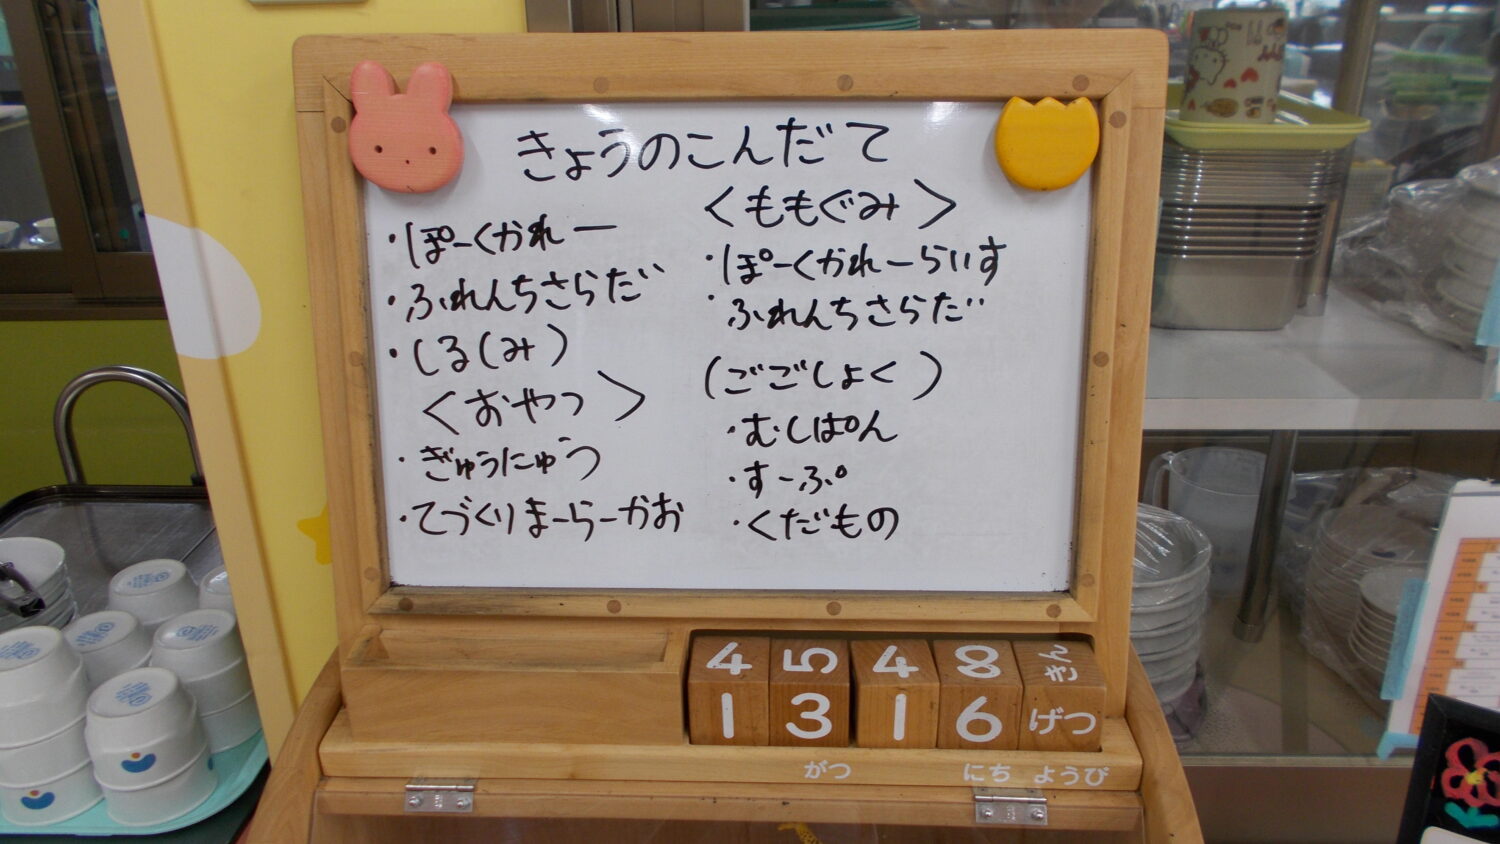 きょうのこんだて
・ぽーくかれー
・ふれんちさらだ
・しる(み)
<おやつ>
・ぎゅうにゅう
・てづくりまーらーかお
<ももぐみ>
・ぽーくかれーらいす
・ふれんちさらだ
(ごごしょく)
・むしぱん
・すーぷ
・くだもの
4 5 4 8 きん
1 3 1 6 げつ
がつ にち ようび